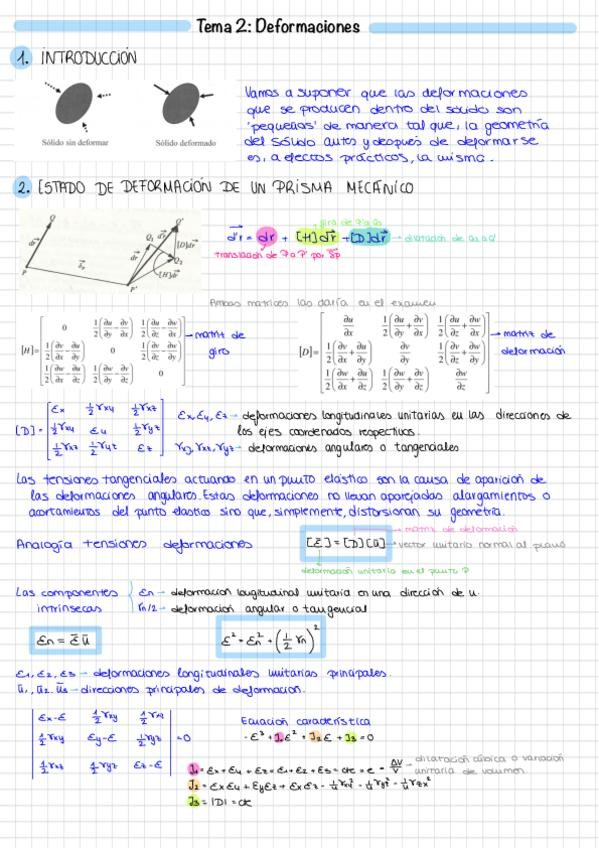 Tema 2: Deformaciones
1. INTRODUCCIÓN
Sólido sin deformar
Sólido deformado
Vamos a suponer que las deformaciones
que se producen dentro del sólido son
'pequeñas' de manera tal que, la geometría
del sólido antes y después de deformarse
es, a efectos prácticos, la misma.
2. ESTADO DE DEFORMACIÓN DE UN PRISMA MECÁNICO
giro de
dr' = dr + [H]dr + [D]dr → dilatación de Q2 a Q'
translación de P a P' por δp
Ambas matrices las daría en el examen
[H] =
→ matriz de
giro
[D] =
→ matriz de
deformación
[D] = [ εx ½γxy ½γxz
½γxy εy ½γyz
½γxz ½γyz εz ]
εx, εy, εz → deformaciones longitudinales unitarias en las direcciones de
los ejes coordenados respectivos.
γxy, γxz, γyz → deformaciones angulares o tangenciales
Las tensiones tangenciales actuando en un punto elástico son la causa de aparición de
las deformaciones angulares. Estas deformaciones no llevan aparejadas alargamientos o
acortamientos del punto elastico sino que, simplemente, distorsionan su geometría.
matriz de deformación
Analogía tensiones deformaciones
[ε] = [D][u] → vector unitario normal al plano
deformación unitaria en el punto P
Las componentes
intrínsecas
εn → deformación longitudinal unitaria en una dirección de u.
γn/2 → deformación angular o tangencial
εn = ε̄ ū
ε² = εn² + (½ γn)²
ε1, ε2, ε3 → deformaciones longitudinales unitarias principales.
ū1, ū2, ū3 → direcciones principales de deformación.
| εx-ε ½γxy ½γxz |
| ½γxy εy-ε ½γyz | = 0
| ½γxz ½γyz εz-ε |
Ecuación característica
-ε³ + J1 ε² + J2 ε + J3 = 0
J1 = εx + εy + εz = ε1 + ε2 + ε3 = cte = e = ΔV/V → dilatación cúbica o variación
unitaria de volumen.
J3 = |D| = cte